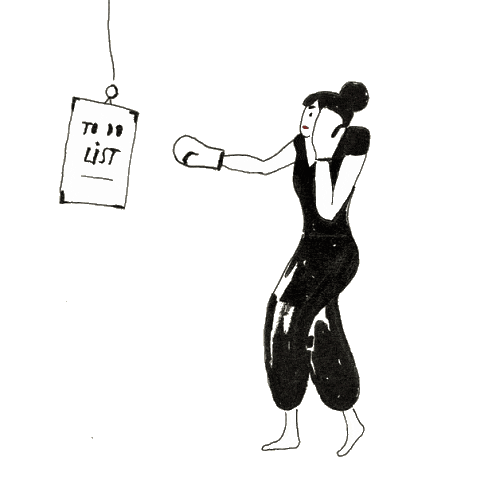 TO DO
LIST